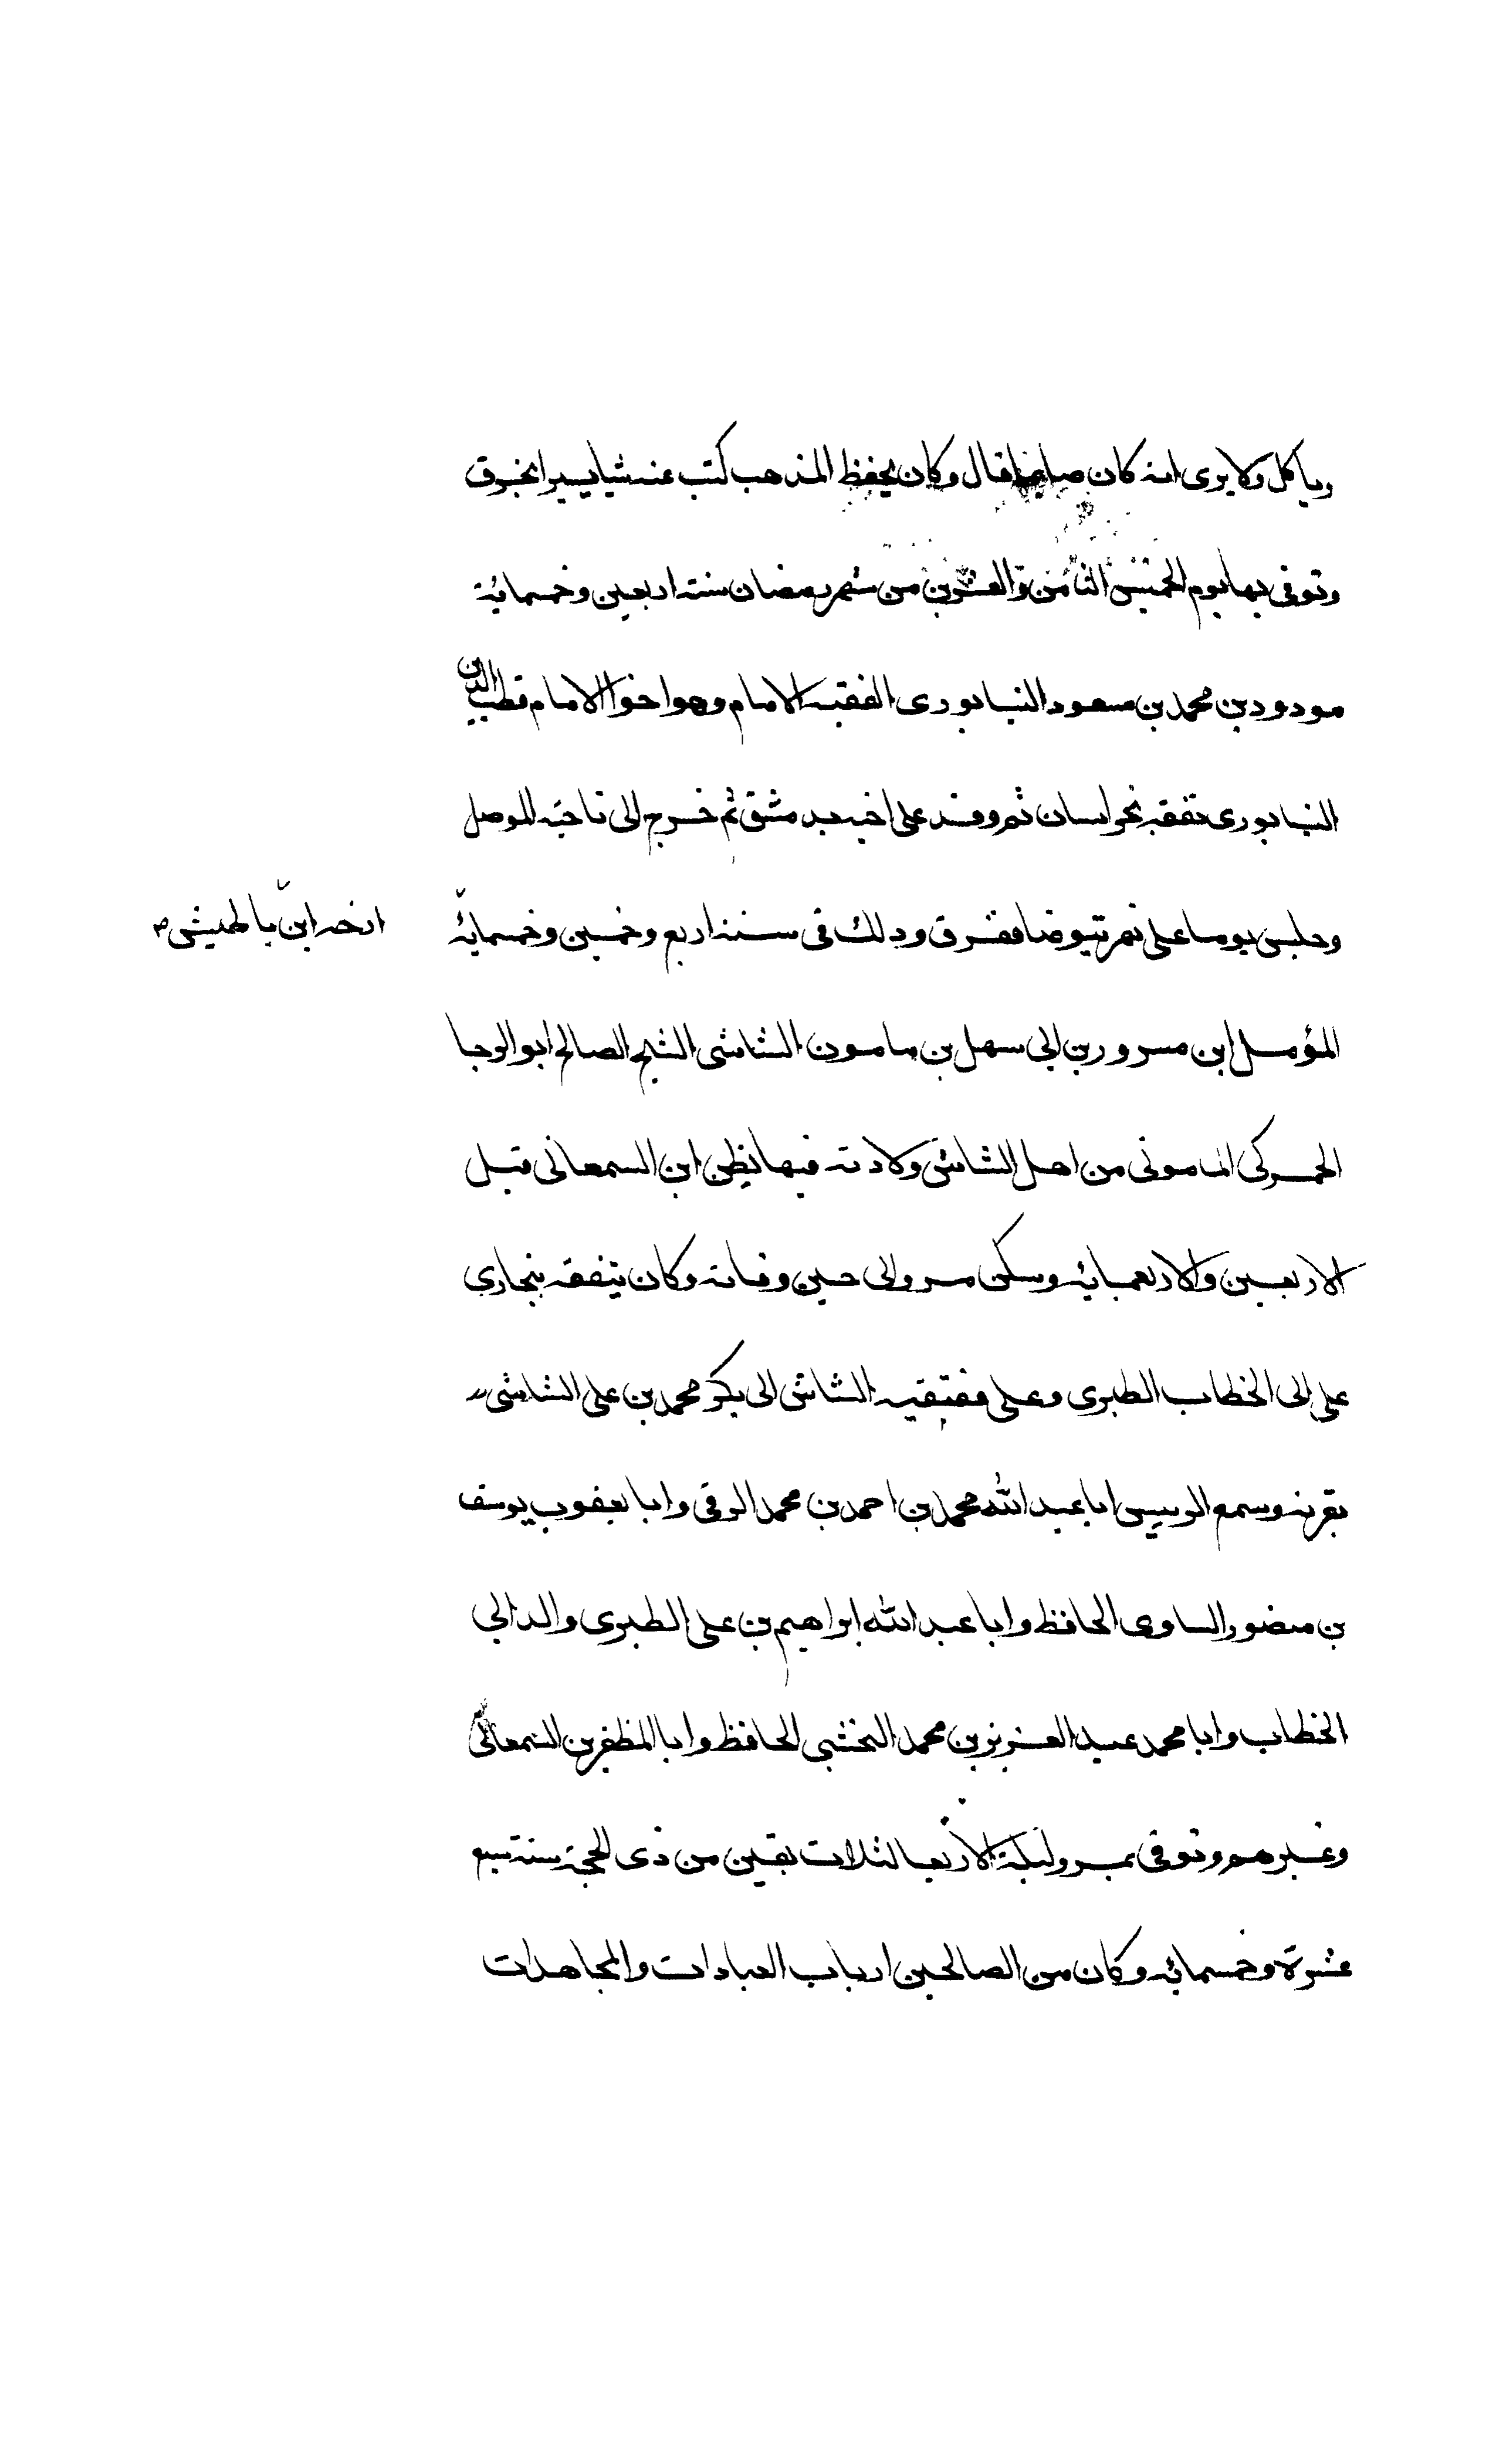 وياكل ولا يرى انه كان صايما قال وكان يحفظ المذهب كتب عنه شيا يسيرا بخرق
وتوفى بها يوم الخميس الثامن والعشرين من شهر رمضان سنة اربعين وخمسمائة
مودود بن محمد بن مسعود النيسابورى الفقيه الامام وهو اخو الامام قطب الدين
النيسابورى تفقه بخراسان ثم وفد على اخيه بدمشق ثم خرج الى ناحية الموصل
وجلس يوما على نهر يتوضا فغرق وذلك فى سنة اربع وخمسين وخمسمائة
المؤمل ابن مسرور بن ابى سهل بن مامون الشاشى الشيخ الصالح ابو الرجا
الخمركى المامونى من اهل الشاش ولادته فيها يظن ابن السمعانى قبل
الاربعين والاربعمائة وسكن مرو الى حين وفاته وكان يتفقه ببخارى
على ابى الخطاب الطبرى وعلى فقيه الشاش ابى بكر محمد بن على الشاشى
بغزنة وسمع الرييس ابا عبد الله محمد بن احمد بن محمد الرقى وابا يعقوب يوسف
بن منصور الساوى الحافظ وابا عبد الله ابراهيم بن على الطبرى والد ابى
الخطاب وابا محمد عبد العزيز بن محمد النخشبى الحافظ وابا المظفر بن السمعانى
وغيرهم وتوفى بمرو ليلة الاربعا لثلاث بقين من ذى الحجة سنة سبع
عشرة وخمسمائة وكان من الصالحين ارباب العبادات والمجاهدات